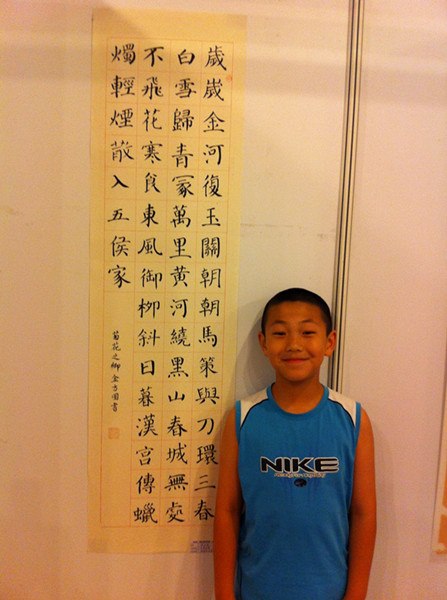 歲歲金河復玉關朝朝馬策與刀環三春
白雪歸青冢萬里黄河繞黑山春城無處
不飛花寒食東風御柳斜日暮漢宮傳蠟
燭輕煙散入五侯家
菊花之鄉金方圓書
NIKE